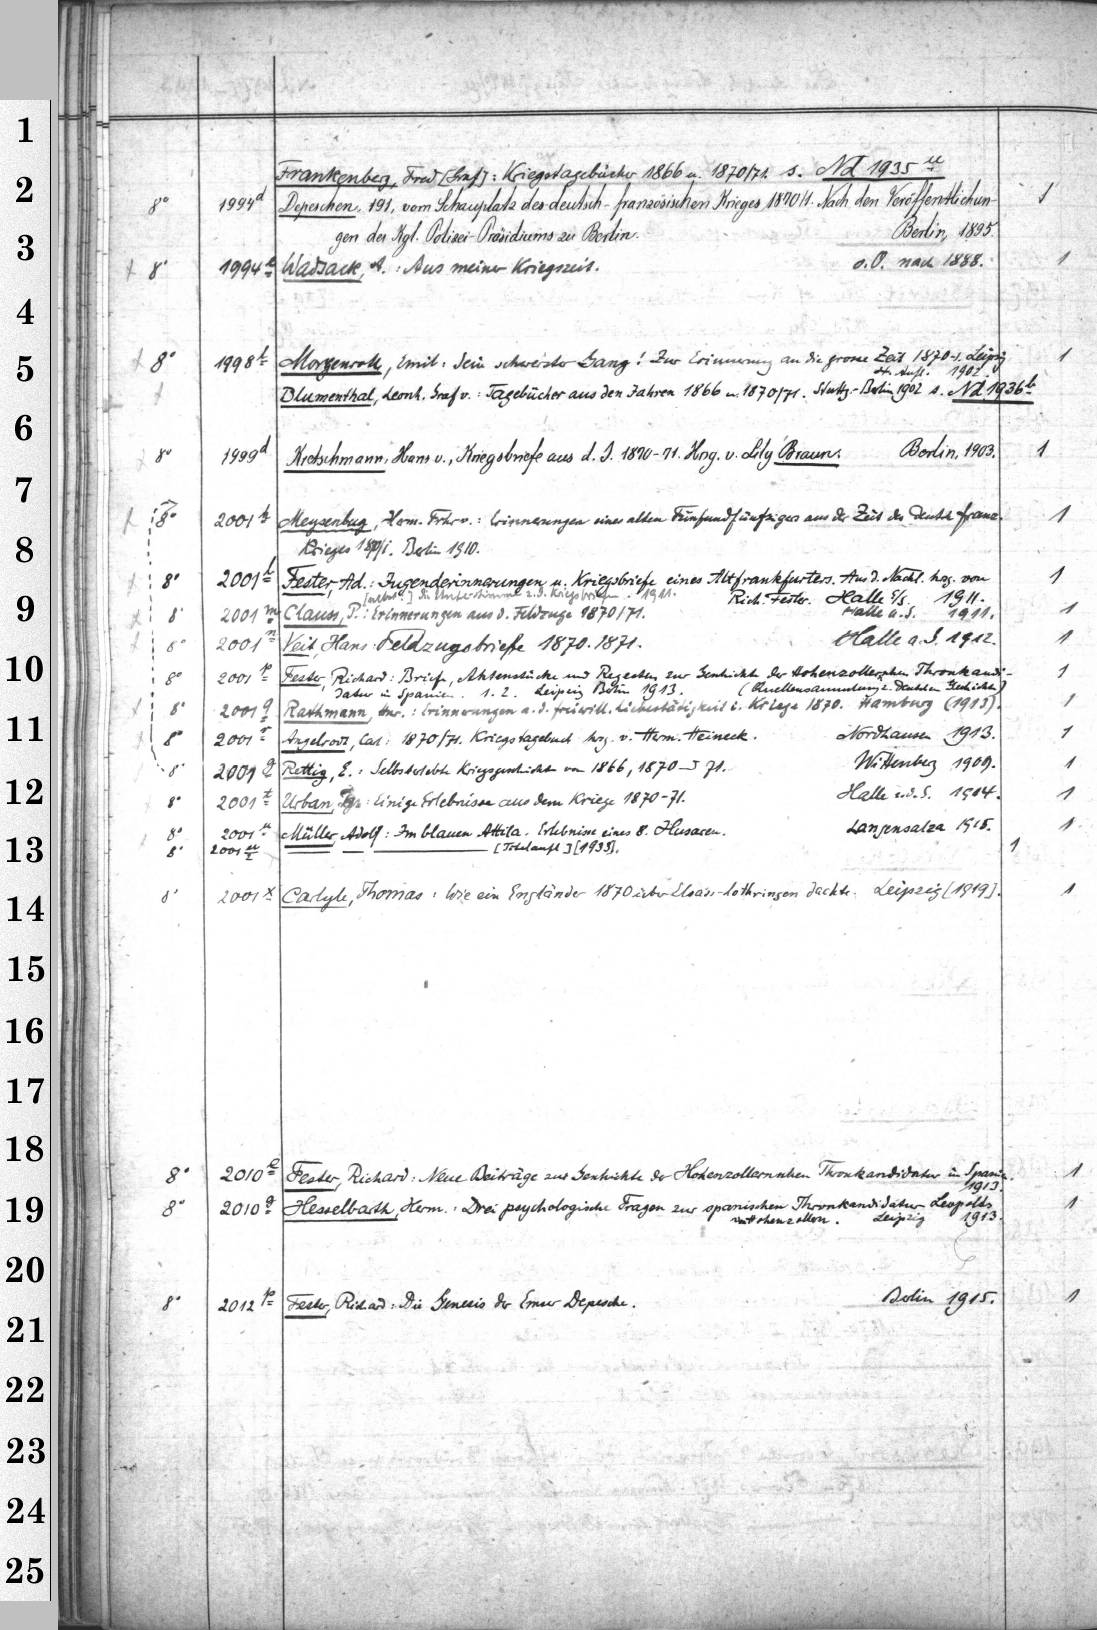 1
2
3
4
5
6
7
8
9
10
11
12
13
14
15
16
17
18
19
20
21
22
23
24
25
Frankenberg, Fred [Graf]: Kriegstagebücher 1866 u. 1870/71. s. Nd 1935 u
8° 1994 d Depeschen, 191, vom Schauplatz des deutsch-französischen Krieges 1870/1. Nach den Veröffentlichun- 1
gen des Kgl. Polizei-Präsidiums zu Berlin. Berlin, 1895.
8° 1994 Wadsack, A.: Aus meiner Kriegszeit. o.O. nach 1888. 1
8° 1998 b Morgenroth, Emil: Sein schwerster Gang! Zur Erinnerung an die grosse Zeit 1870-1. Leipzig 1
Aufl. 1902.
Blumenthal, Leonh. Graf v.: Tagebücher aus den Jahren 1866 u. 1870/71. Stuttg.-Berlin 1902 s. Nd 1936 b
8° 1999 d Kretschmann, Hans v., Kriegsbriefe aus d. J. 1870-71. Hrsg. v. Lily Braun. Berlin, 1903. 1
8° 2001 Meysenbug, Herm. Frhr v.: Erinnerungen eines alten Fünfundfünfzigers aus der Zeit des deutsch franz. 1
Krieges 1870/1. Berlin 1910.
8° 2001 l Fester, Ad.: Jugenderinnerungen u. Kriegsbriefe eines Altfrankfurters. Aus d. Nachl. hrg. von 1
Rich. Fester. Halle a/S. 1911.
8° 2001 m Clauss, P.: Erinnerungen aus d. Feldzuge 1870/71. Halle a.S. 1911. 1
8° 2001 n Veit, Hans: Feldzugsbriefe 1870.1871. Halle a.S. 1912. 1
8° 2001 p Fester, Richard: Briefe, Aktenstücke und Regesten zur Geschichte der Hohenzollernschen Thronkandi- 1
datur in Spanien. 1. 2. Leipzig Berlin 1913. (Quellensammlung z. deutschen Geschichte)
8° 2001 q Rathmann, Hnr.: Erinnerungen a. d. freiwill. Liebestätigkeit i. Kriege 1870. Hamburg (1913). 1
8° 2001 r Angelrodt, Carl: 1870/71. Kriegstagebuch hrg. v. Herm. Heineck. Nordhausen 1913. 1
8° 2001 Rettig, E.: Selbsterlebte Kriegsgeschichten von 1866, 1870 u 71. Wittenberg 1909. 1
8° 2001 t Urban, : Einige Erlebnisse aus dem Kriege 1870-71. Halle a.d.S. 1914. 1
8° 2001 u Müller, Adolf: Im blauen Attila. Erlebnisse eines 8. Husaren. Langensalza 1915. 1
8° 2001 [1935]. 1
8° 2001 x Carlyle, Thomas: Wie ein Engländer 1870 über Elsass-Lothringen dachte. Leipzig [1919]. 1
8° 2010 Fester, Richard: Neue Beiträge zur Geschichte der Hohenzollernschen Thronkandidatur in Spanien. 1
1913.
8° 2010 g Hesselbarth, Herm.: Drei psychologische Fragen zur spanischen Thronkandidatur Leopolds 1
von Hohenzollern. Leipzig 1913.
8° 2012 p Fester, Richard: Die Genesis der Emser Depesche. Berlin 1915. 1